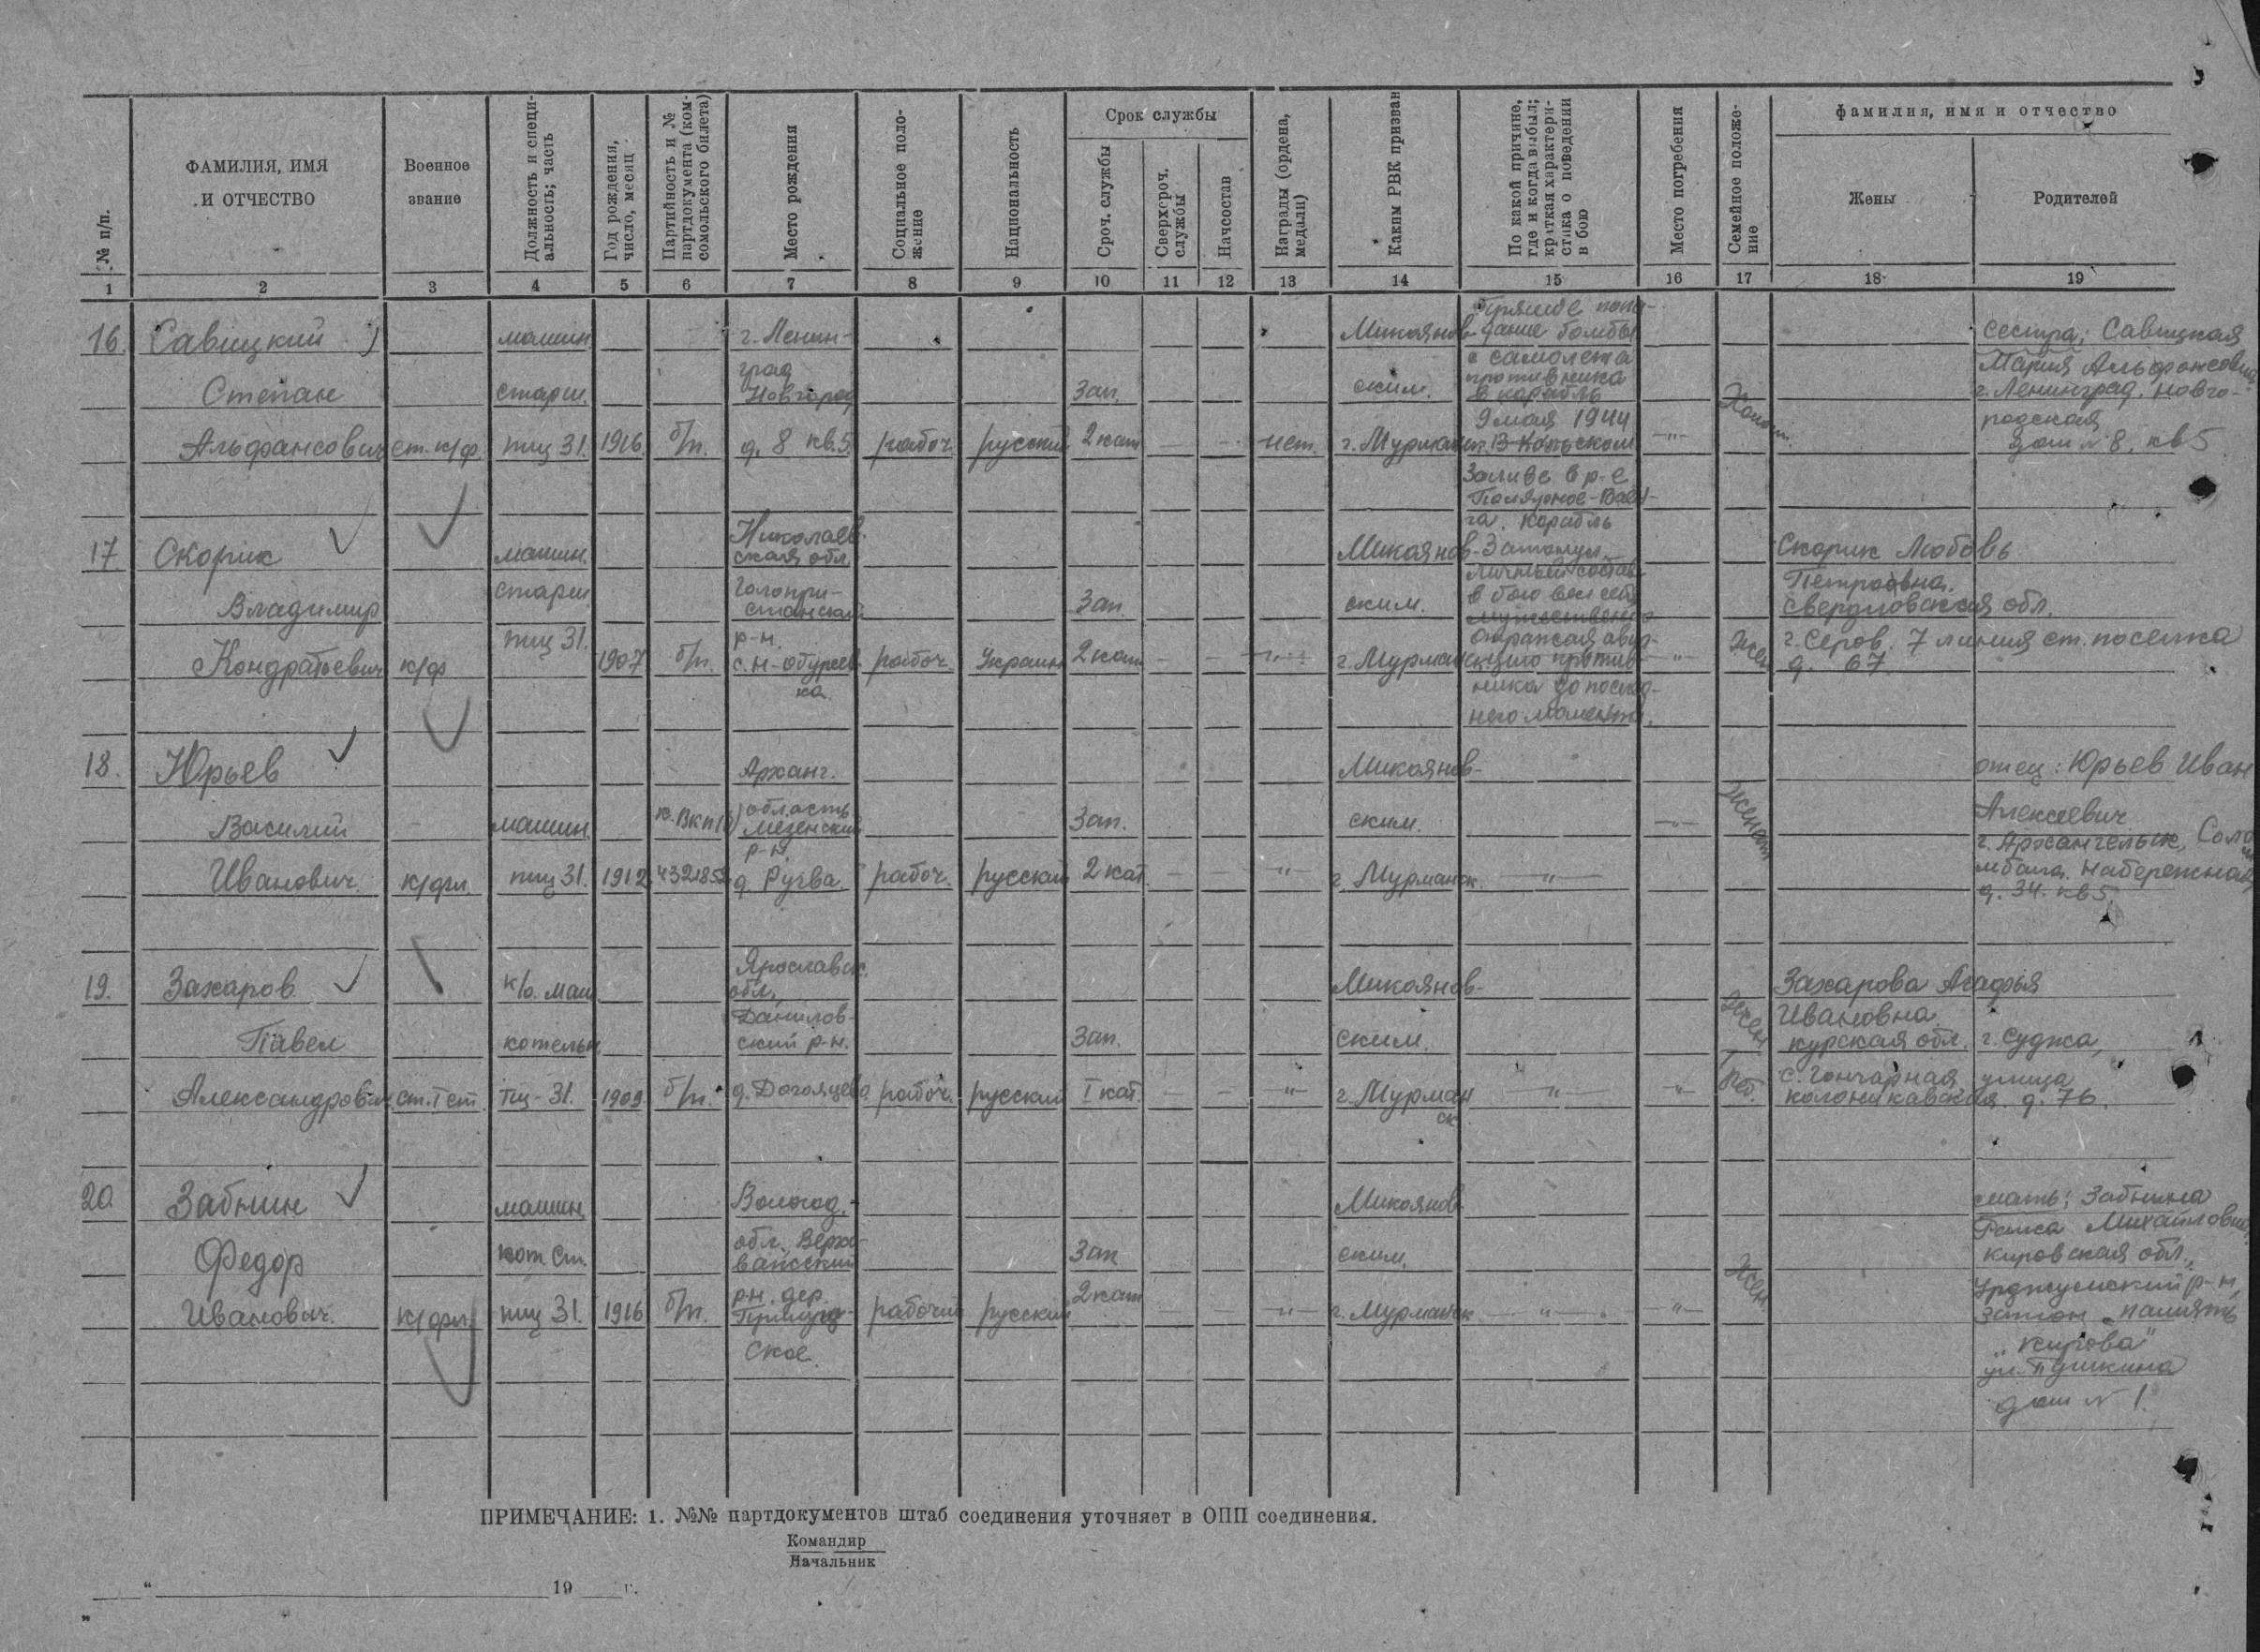 № п/п.
ФАМИЛИЯ, ИМЯ
И ОТЧЕСТВО
Военное
звание
Должность и специ-
альность; часть
Год рождения,
число, месяц
Партийность и №
партдокумента (ком-
сомольского билета)
Место рождения
Социальное поло-
жение
Национальность
Срок службы
Сроч. службы
Сверхсроч.
службы
Начсостав
Награды (ордена,
медали)
Каким РВК призван
По какой причине,
где и когда выбыл;
краткая характери-
стика о поведении
в бою
Место погребения
Семейное положе-
ние
фамилия, имя и отчество
Жены
Родителей
1 2 3 4 5 6 7 8 9 10 11 12 13 14 15 16 17 18 19
16.
Савицкий
Степан
Альфансович
ст. к/ф
машин.
старш.
пищ 31.
1916.
б/п.
г. Ленин-
град
Новгород
д. 8 кв. 5
рабоч.
русский
Зап.
2 кат
— —
нет.
Микоянов-
ским.
г. Мурманск
Прямое попа-
дание бомбы
с самолета
противника
в корабль
9 мая 1944
г. В Кольском
Заливе в р-е
Полярное-Ваен-
га. Корабль
Затонул.
Личный состав
в бою вел себя
мужественно
отражая авиа-
цию против-
ника до послед-
него момента.
—"—
Холост.
сестра: Савицкая
Мария Альфонсовна
г. Ленинград, Новго-
родская
дом № 8, кв 5
17
Скорик
Владимир
Кондратьевич
к/ф
машин.
старш
пищ 31.
1907
б/п.
Николаев-
ская обл.
Голопри-
станский
р-н.
рабоч.
Украин
Зап.
2 кат
— — —"—
Микоянов-
ским.
г. Мурманск
—"—
Жен
Скорик Любовь
Петровна.
Свердловская обл.
г. Серов. 7 линия ст. поселка
д. 67
18.
Юрьев
Василий
Иванович.
к/фл.
машин.
пищ 31.
1912
к. Вкп(б)
Арханг.
область
Мезенский
р-н.
д. Ручва
рабоч.
русский
Зап.
2 кат.
— —"—
Микоянов-
ским.
г. Мурманск.
—"—
—"—
женат
отец: Юрьев Иван
Алексеевич
г. Архангельск, Соло
мбала. Набережная,
д. 34. кв 5.
19.
Захаров
Павел
Александрович
ст. I ст.
к/о. маш
котельн.
пищ-31.
1909.
б/п.
Ярославск.
обл.,
Данилов-
ский р-н.
рабоч.
русский
Зап.
I кат.
— — —"—
Микоянов-
ским.
г. Мурман
ск
—"—
—"—
жен
1 реб.
Захарова Агафья
Ивановна
курская обл. г. Суджа,
с. Гончарная, улица
д. 76.
20.
Забнин
Федор
Иванович.
к/фл.
машин
кот. ст.
пищ 31.
1916
б/п.
Вологод.-
обл., Верхо-
важский
р-н. дер.
рабочий
русский
Зап
2 кат
— — —"—
Микоянов-
ским.
г. Мурманск
—"—
—"—
Жен
мать: Забнина
Раиса Михайловна
Кировская обл.,
Уржумский р-н,
затон „память
„Кирова"
ул. Пушкина
дом № 1.
ПРИМЕЧАНИЕ: 1. №№ партдокументов штаб соединения уточняет в ОПП соединения.
Командир
Начальник
" 19 г.